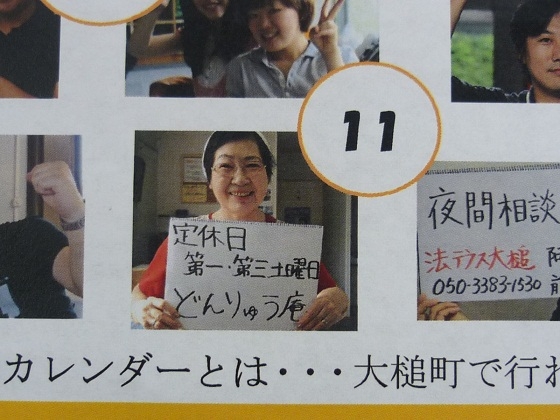 11
定休日
第一・第三土曜日
どんりゅう庵
夜間相談
法テラス大槌
050-3383-1530
カレンダーとは・・・大槌町で行